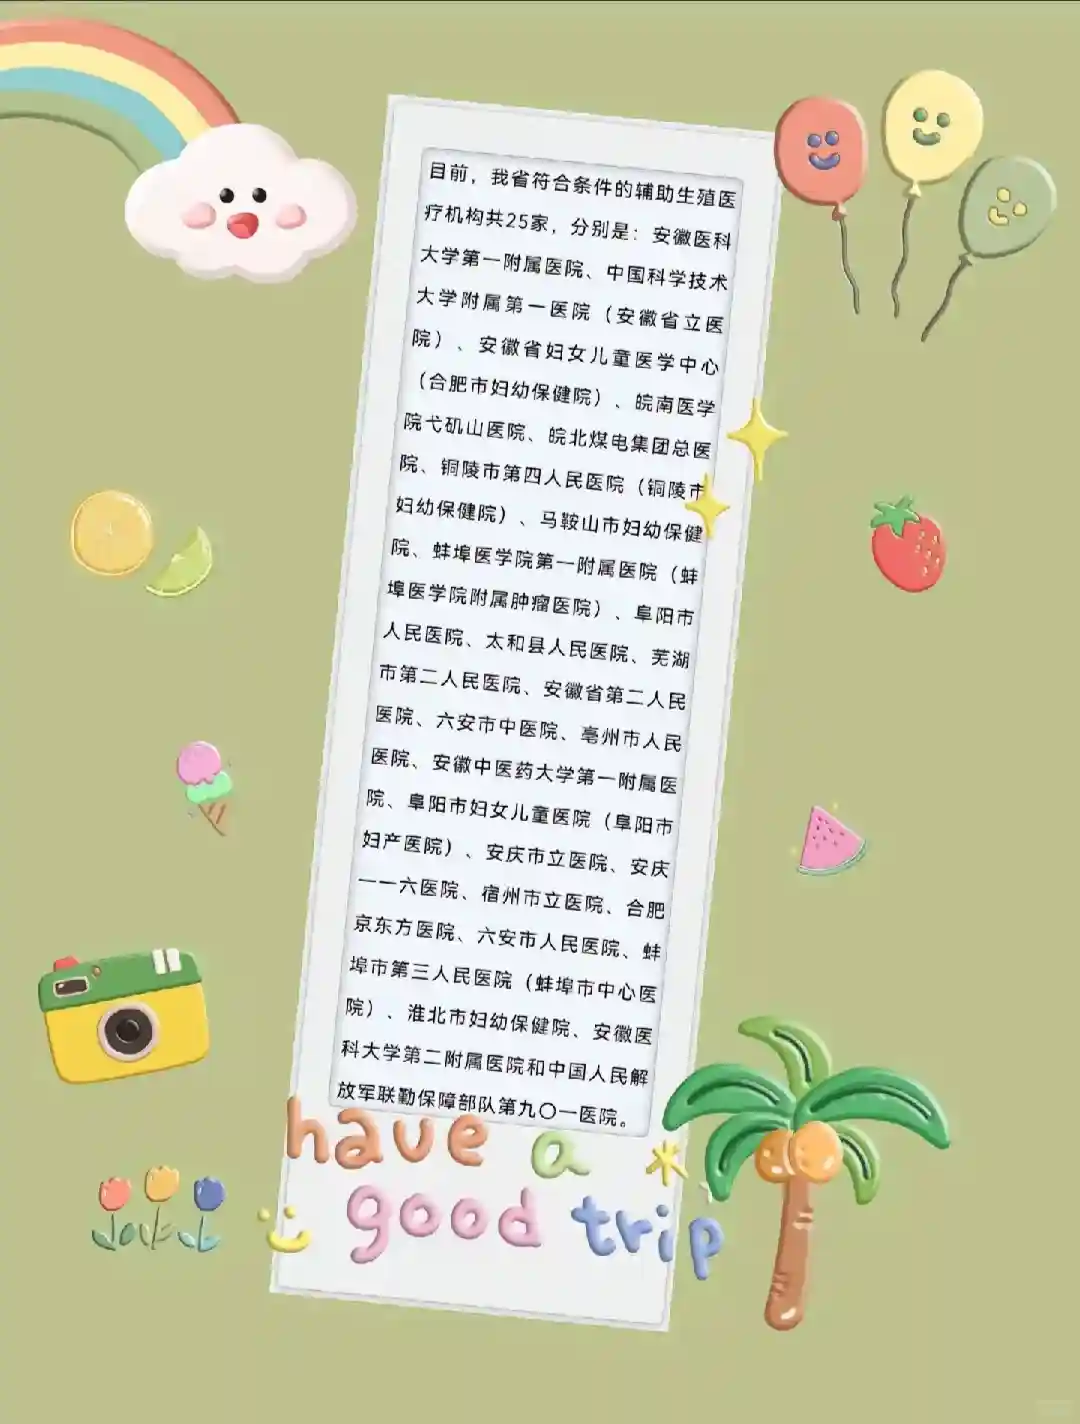 目前，我省符合条件的辅助生殖医
疗机构共25家，分别是：安徽医科
大学第一附属医院、中国科学技术
大学附属第一医院（安徽省立医
院）、安徽省妇女儿童医学中心
（合肥市妇幼保健院）、皖南医学
院弋矶山医院、皖北煤电集团总医
院、铜陵市第四人民医院（铜陵市
妇幼保健院）、马鞍山市妇幼保健
院、蚌埠医学院第一附属医院（蚌
埠医学院附属肿瘤医院）、阜阳市
人民医院、太和县人民医院、芜湖
市第二人民医院、安徽省第二人民
医院、六安市中医院、亳州市人民
医院、安徽中医药大学第一附属医
院、阜阳市妇女儿童医院（阜阳市
妇产医院）、安庆市立医院、安庆
一一六医院、宿州市立医院、合肥
京东方医院、六安市人民医院、蚌
埠市第三人民医院（蚌埠市中心医
院）、淮北市妇幼保健院、安徽医
科大学第二附属医院和中国人民解
放军联勤保障部队第九〇一医院。
have a
good trip